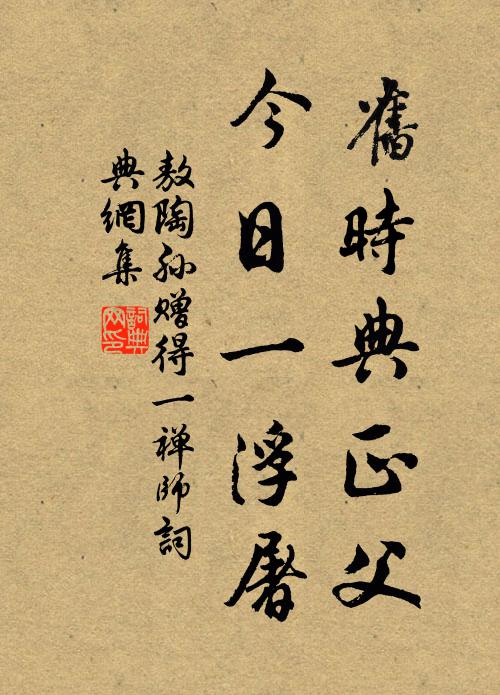 舊時典正父
今日一浮屠
敖陶孙赠得一禅師詞
典網集
詞典网印